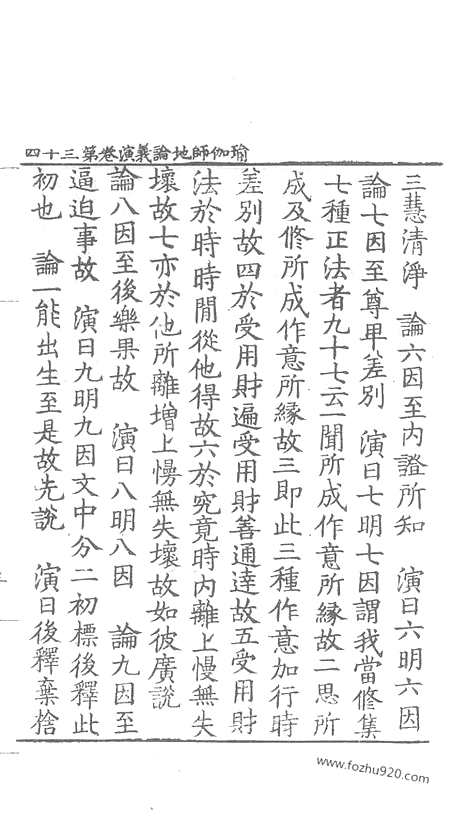 瑜伽師地論義演卷第三十四
三慧清淨　論六因至內證所知　演曰六明六因
論七因至尊卑差別　演曰七明七因謂我當修集
七種正法者九十七云一聞所成作意所緣故二思所
成及修所成作意所緣故三即此三種作意加行時
差別故四於受用財遍受用財善通達故五受用財
法於時時間從他得故六於究竟時內離上慢無失
壞故七亦於他所離增上慢無失壞故如彼廣說
論八因至後樂果故　演曰八明八因　論九因至
逼迫事故　演曰九明九因文中分二初標後釋此
初也　論一能出生至是故先說　演曰後釋棄捨
www.fozhu920.com